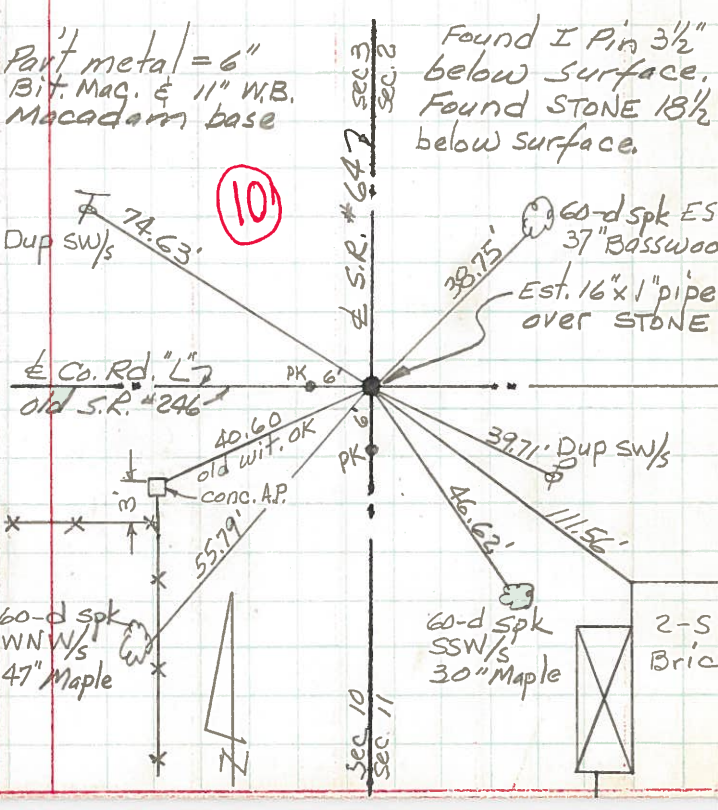 Pav't metal = 6"
Bit. Mac. & 11" W.B.
Macadam base
sec. 3
sec. 2
Found I Pin 3½"
below surface.
Found STONE 18½
below surface.
10
74.63'
Dup SW/s
℄ S.R. #647
38.75'
60-d spk ES
37" Basswoo
Est. 16" x 1" pipe
over STONE
℄ Co. Rd. "L"
old S.R. #246
PK 6'
40.60
old wit. OK
6'
PK
39.71'
Dup SW/s
3'
conc. A.P.
55.79'
46.62'
111.56'
60-d spk
WNW/s
47" Maple
60-d spk
SSW/s
30" Maple
2-S
Bric
N
Sec. 10
Sec. 11